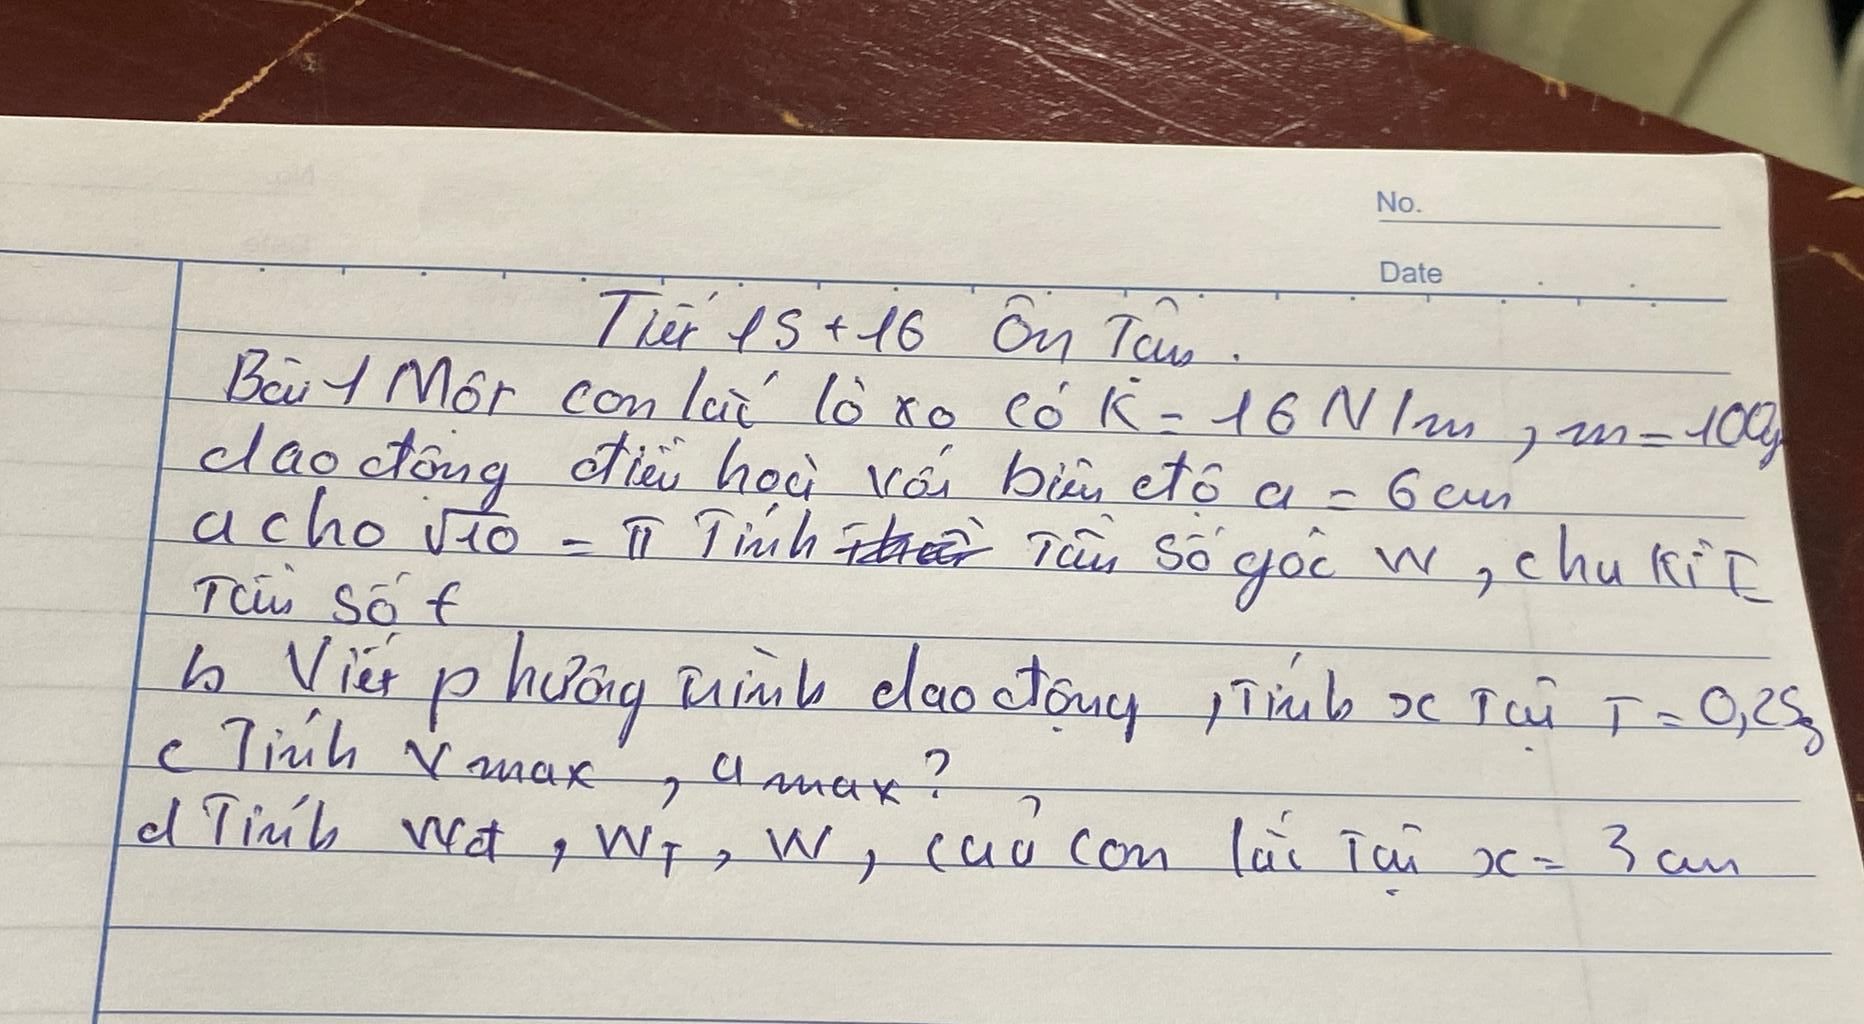 No.
Date
Tiết 15+16 Ôn Tập.
Bài 1 Một con lắc lò xo có K = 16 N/m, m = 100g
dao động điều hoà với biên độ a = 6 cm
a cho √10 = π Tính Tần số góc W, chu kì T
Tần số f
b Viết phương trình dao động, Tính x Tại T = 0,25s
c Tính Vmax, a max?
d Tính Wđ, WT, W, của con lắc Tại x = 3 cm